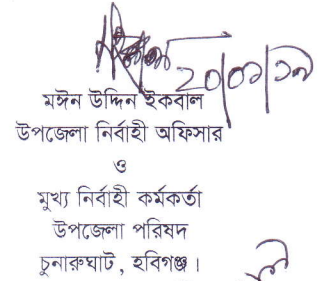 মঈন উদ্দিন ইকবাল
উপজেলা নির্বাহী অফিসার
ও
মুখ্য নির্বাহী কর্মকর্তা
উপজেলা পরিষদ
চুনারুঘাট, হবিগঞ্জ।